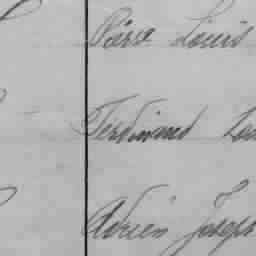 Louis
Ferdinand Lou
Adrien Joseph